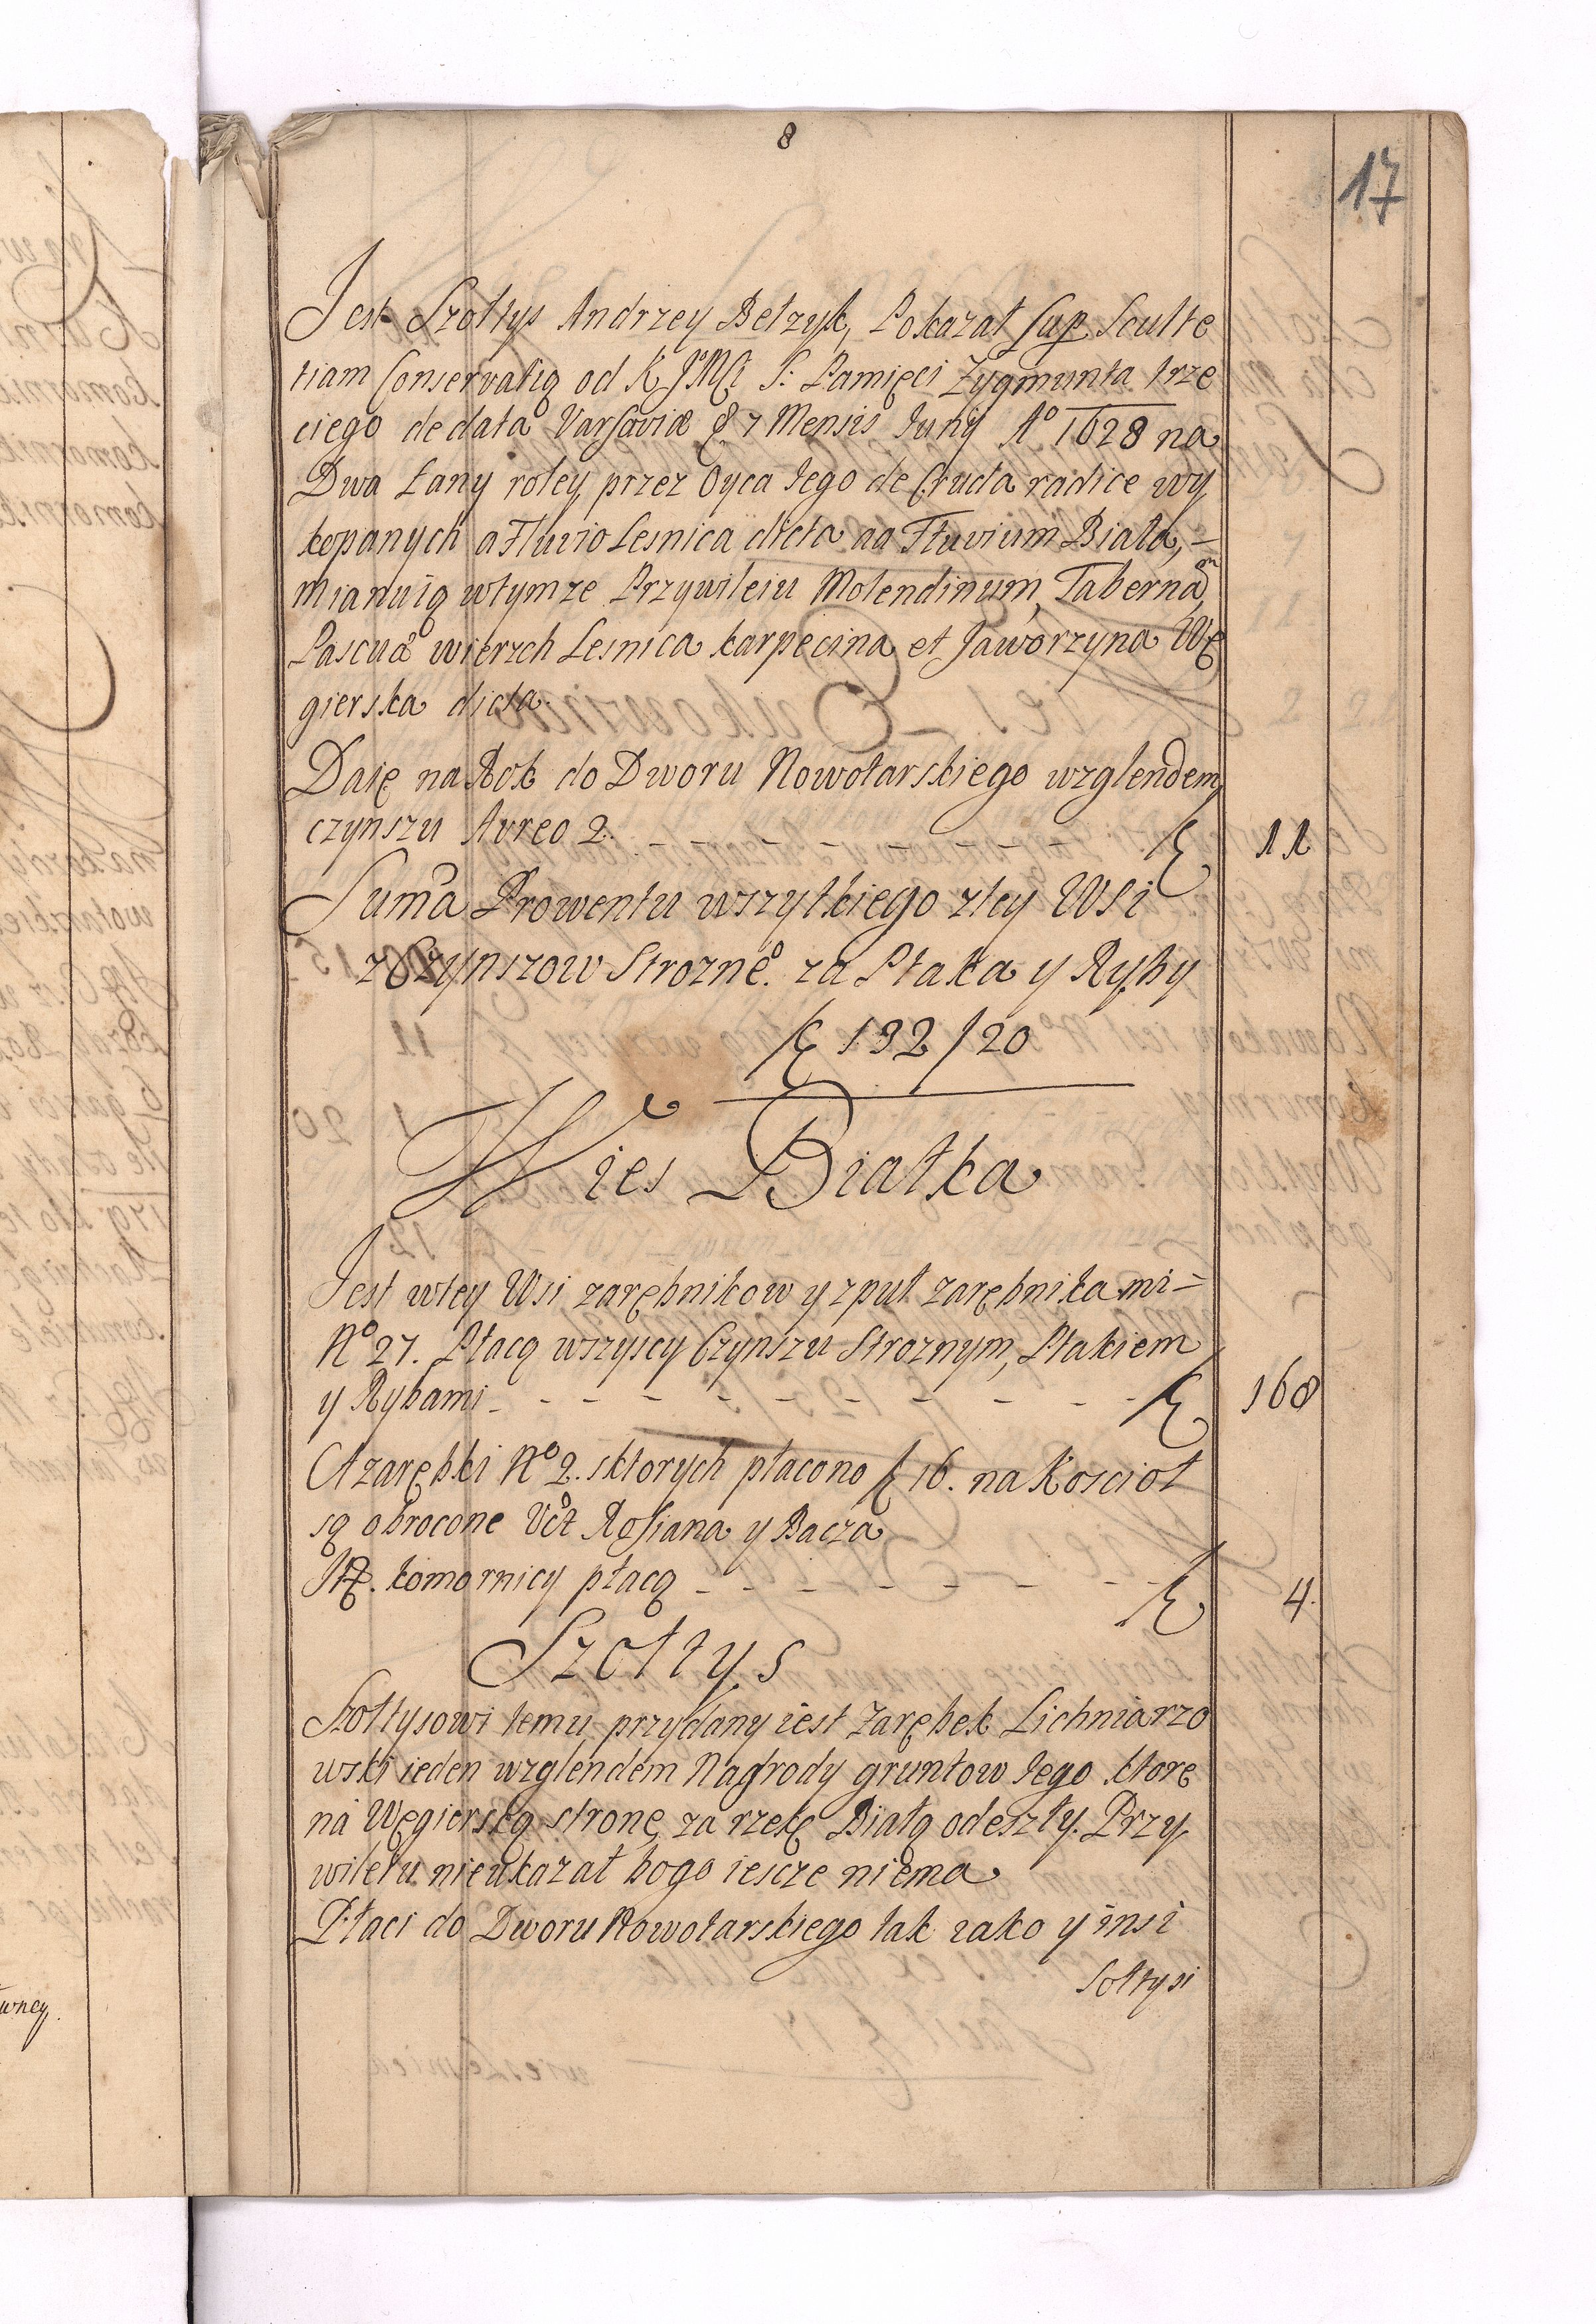 8
17
Jest Szołtys Andrzey Bełzyk, Pokazał sup Sculte
tiam Conservatią od K JMCi S: Pamięci Zygmunta trze
ciego de data Varsaviæ 7 Mensis Juny Aº 1628 na
Dwa Łany roley przez Oyca Iego de Cruda radice wy
kopanych a Fluvio Lesnica dicta ad Fluvium Biała,
mianuią wtymze Przywileiu Molendinum, Taberna,
Pascua wierzch Lesnica karpecina et Jaworzyna Wę
gierska dicta.
Daię na Rok do Dworu Nowotarskiego wzglendem
czynszu Aureo 2. - - - - - - - - 11
Suma Prowentu wszytkiego ztey Wsi
z Czynszow Strozne. za Ptaka y Ryby
132/20
Wies Białka
Jest wtey Wsi zarębnikow y zpuł zarębnika mi
Nº 27. Płacą wszyscy Czynszu Stroznym, Ptakiem
y Rybami - - - - - - - - - 168
A zarębki Nº 2. sktorych płacono 16. na Koscioł
są obrocone Vct Rosiana y Bacza
It. komornicy płacą - - - - - - - - 4.
Szołtys
Szołtysowi temu przydany iest Zarębek Lichniarzo
wski ieden wzglendem Nagrody gruntow Iego ktore
na Węgierską stronę za rzekę Białą odeszły. Przy
wileiu nieukazał bogo iescze niema
Płaci do Dworu Nowotarskiego tak iako y insi
Sołtysi
wney.